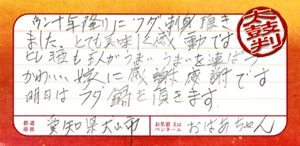 ウン十年降りにフグ刺身頂き
ました、とても美味しく感動です
ヒレ酒も主人がうまいうまいを連発
かわいい嫁に感謝感謝です
明日はフグ鍋を頂きます。
太鼓判
都道府県 愛知県犬山市
お名前又はペンネーム おばあちゃん